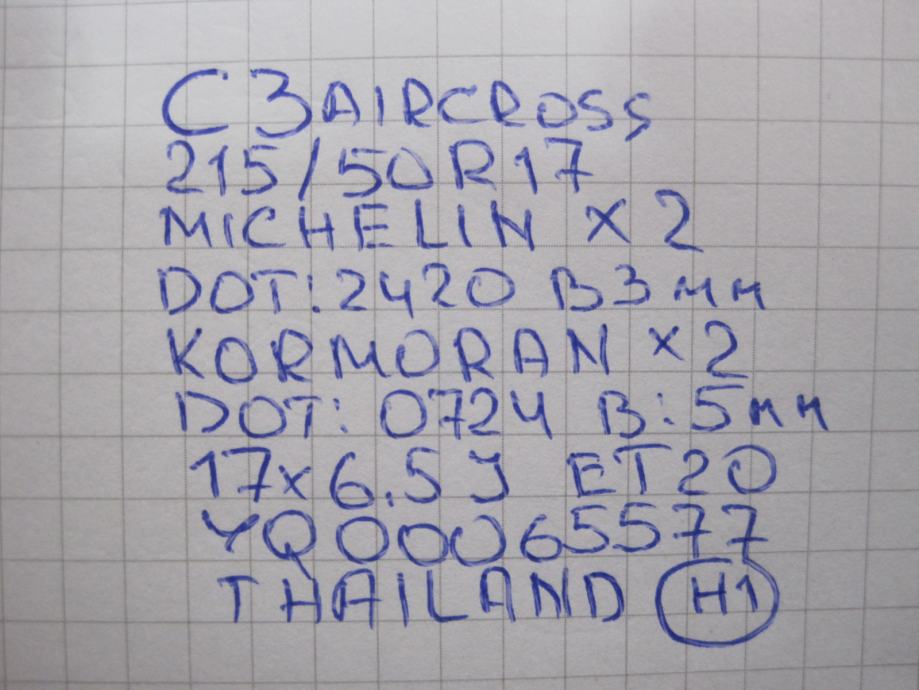 C3 AIRCROSS
215/50R17
MICHELIN x 2
DOT: 2420 B3мм
KORMORAN x2
DOT: 0724 B: 5мм
17x6.5J ET20
YQ00065577
THAILAND H1